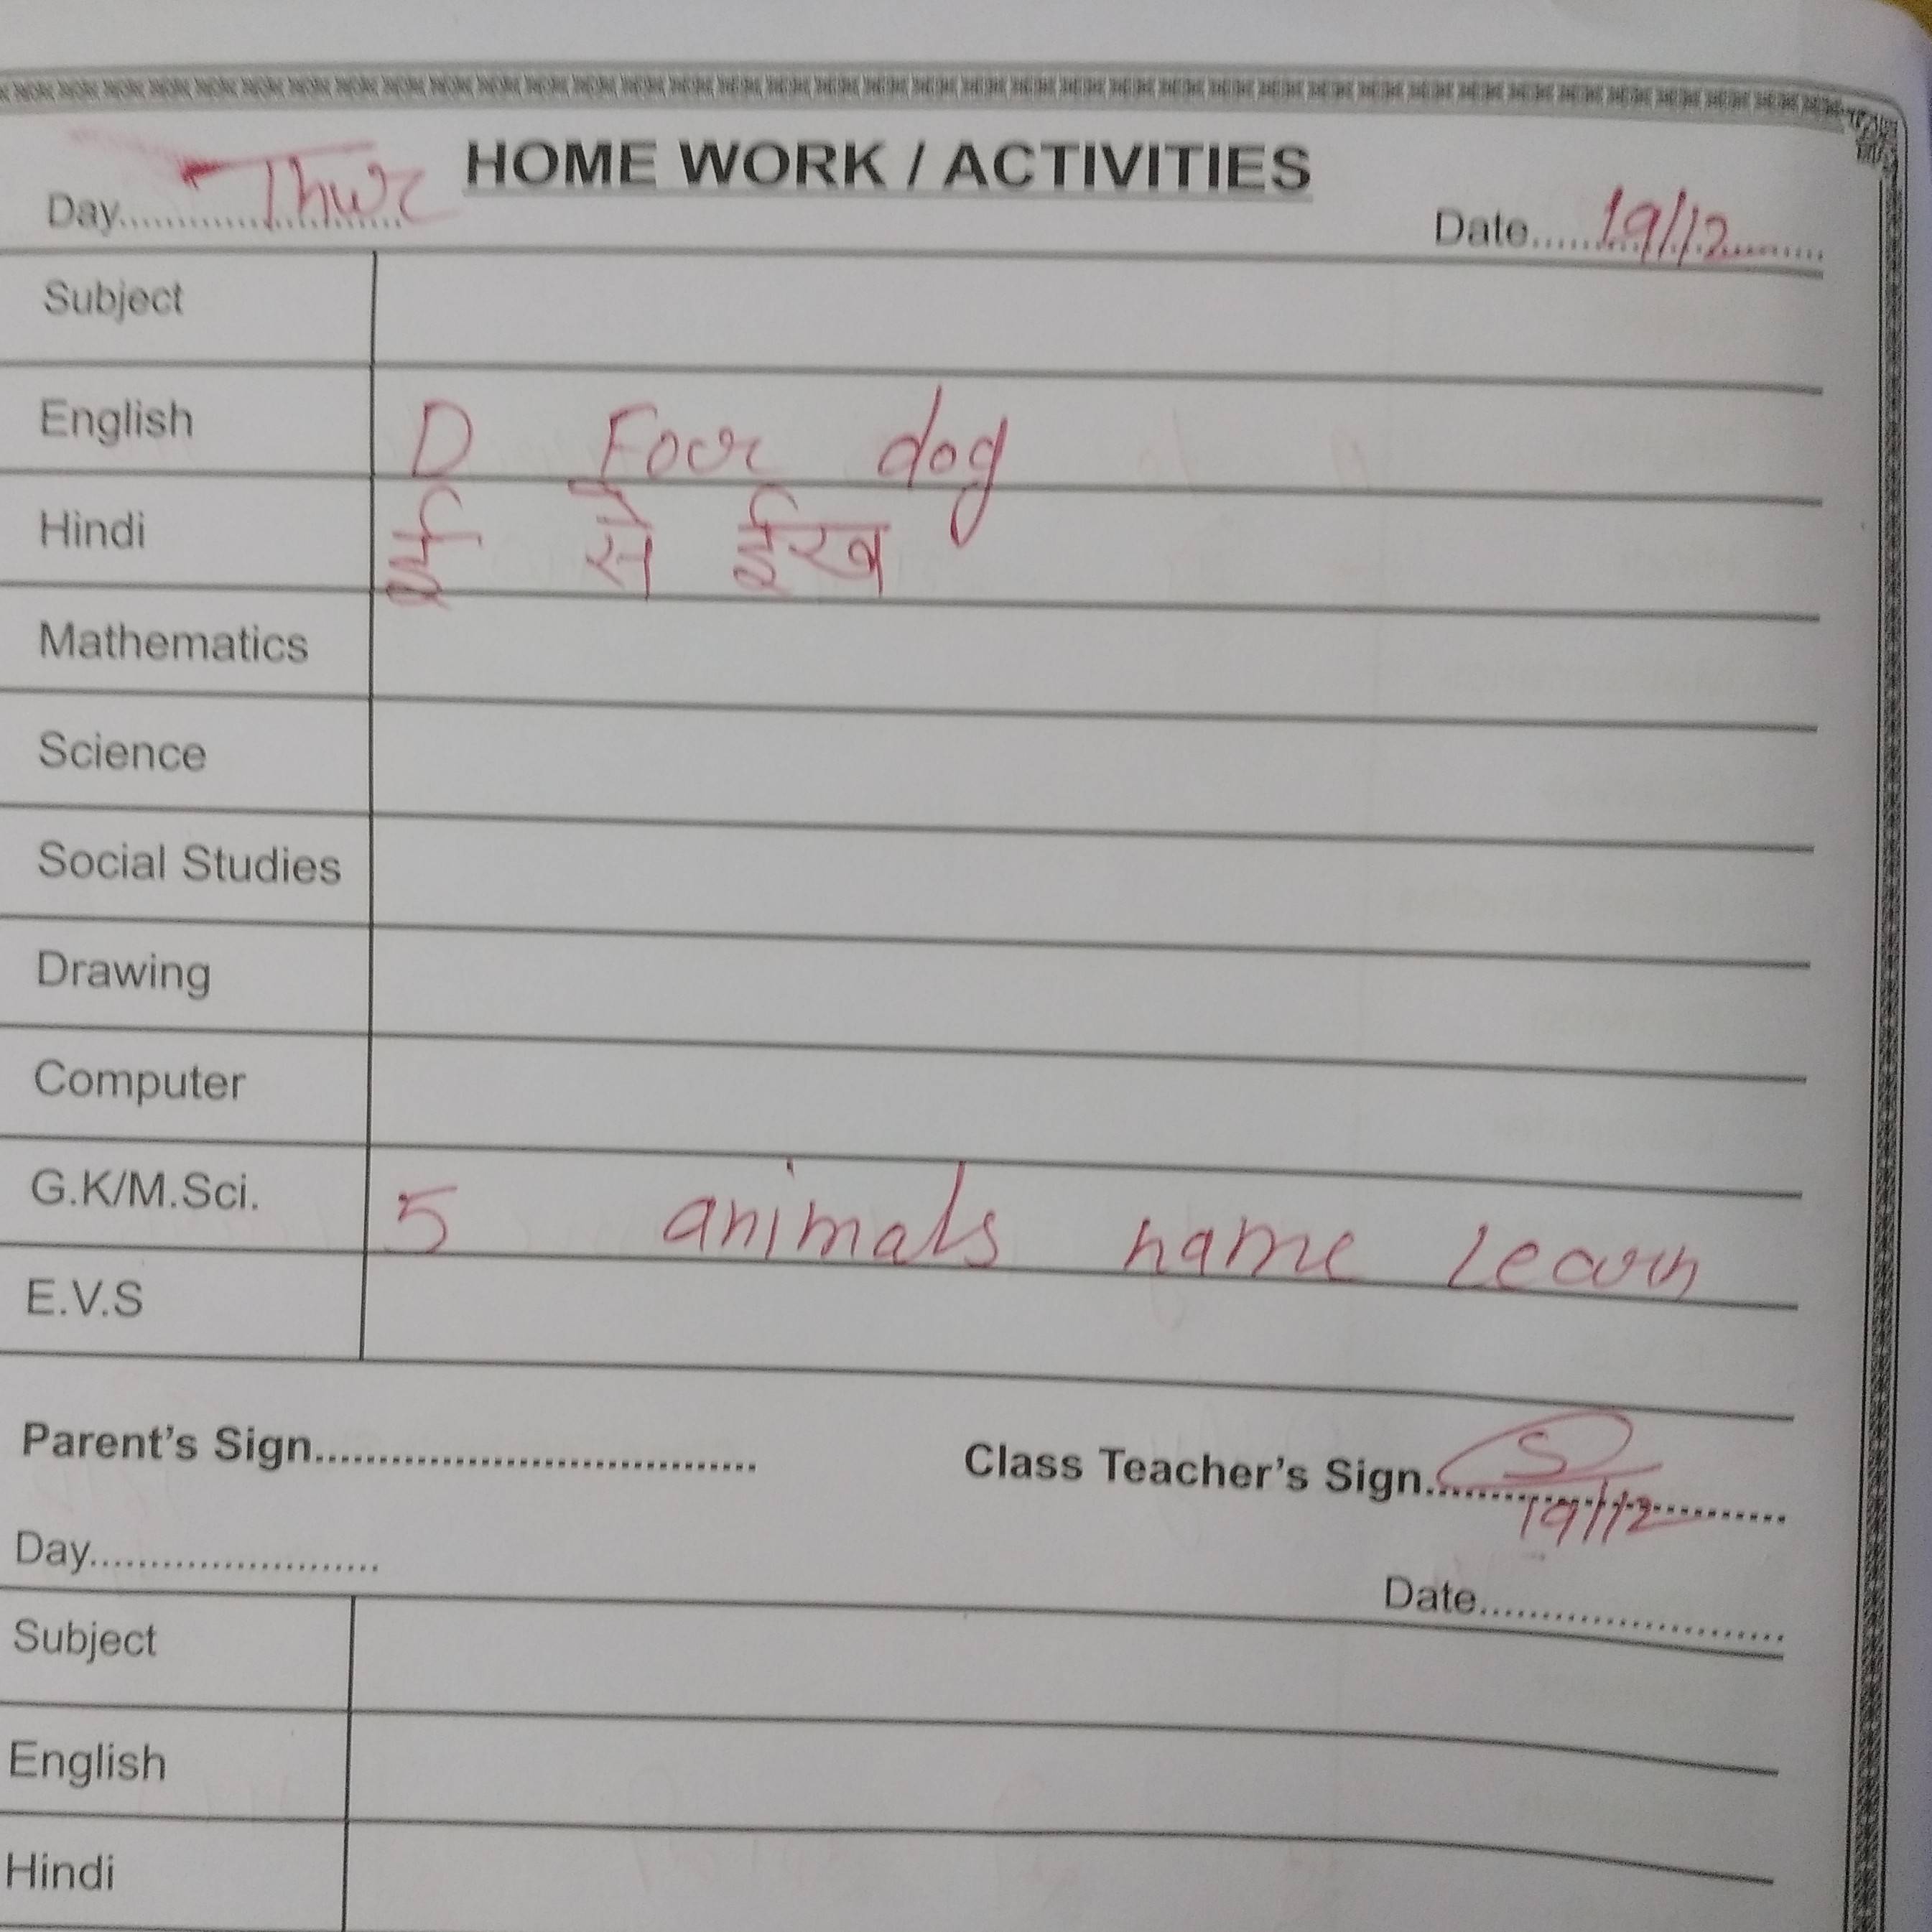 HOME WORK / ACTIVITIES
Day.................... Thur
Date.................... 19/12
Subject
English D Foor dog
Hindi ई से ईख
Mathematics
Science
Social Studies
Drawing
Computer
G.K/M.Sci. 5 animals name Learn
E.V.S
Parent's Sign....................................
Class Teacher's Sign....................................
19/12
Day........................
Date........................
Subject
English
Hindi